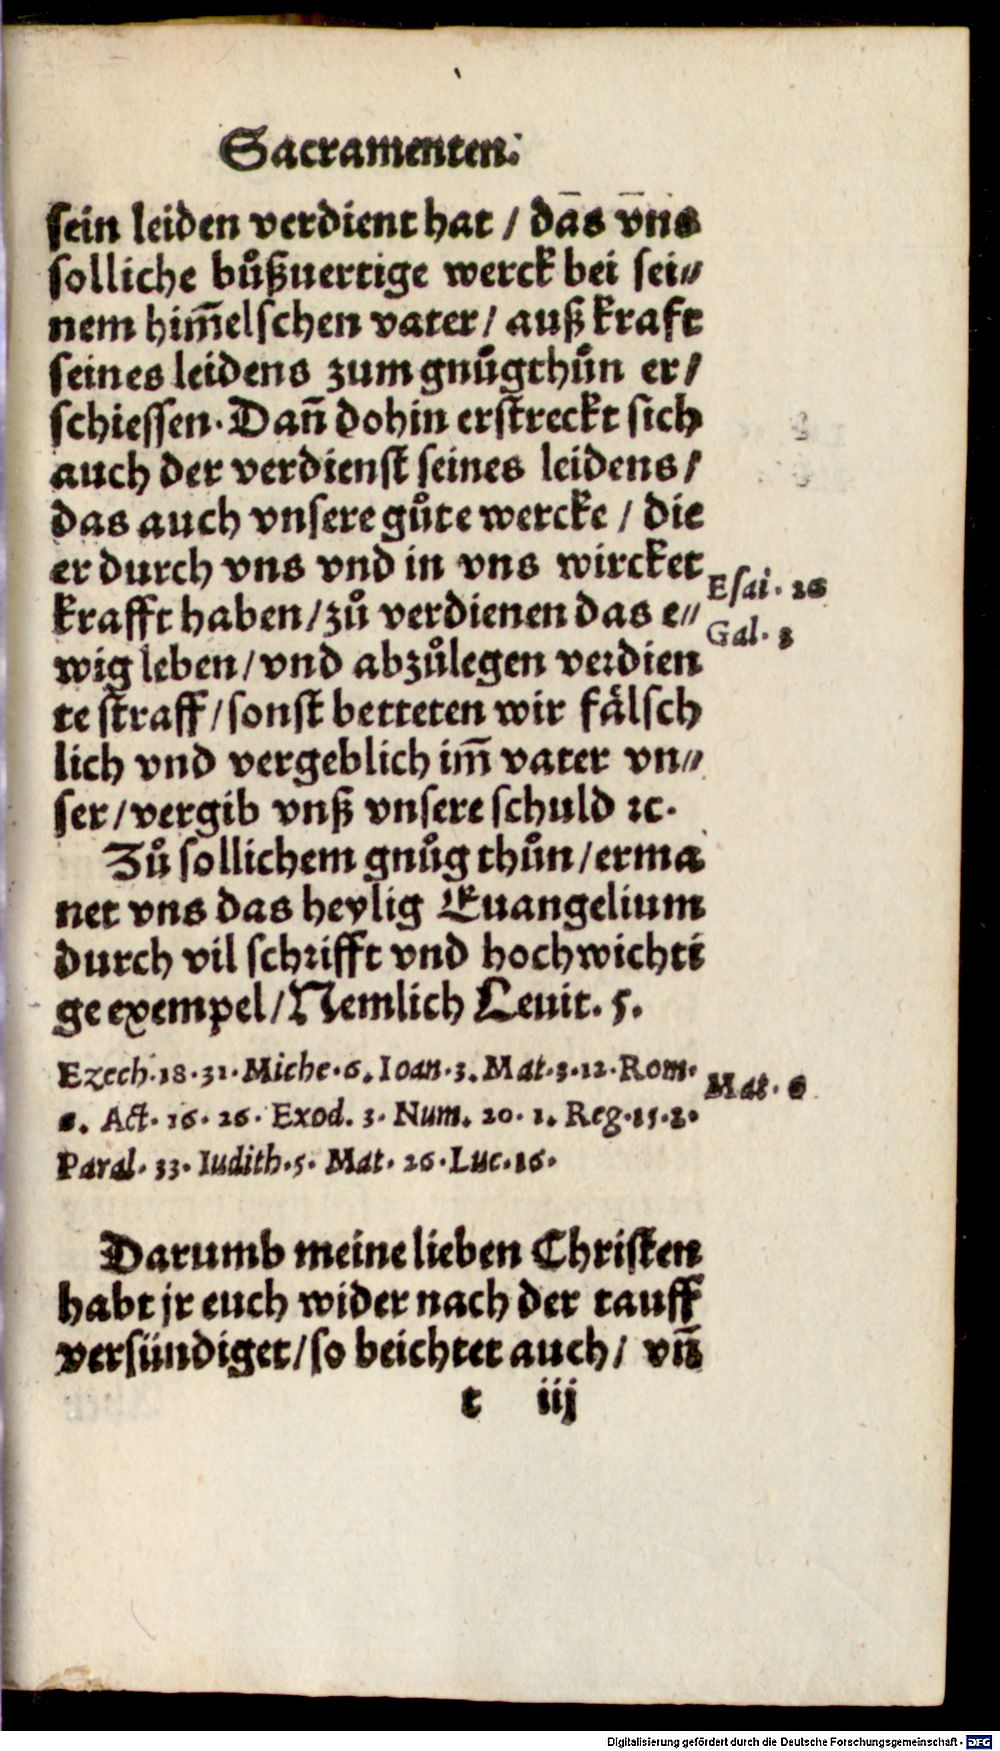 Sacramenten.
sein leiden verdient hat / das vns
solliche bůßuertige werck bei sei⸗
nem him̃elschen vater / auß kraft
seines leidens zum gnůgthůn er/
schiessen. Dañ dohin erstreckt sich
auch der verdienst seines leidens /
das auch vnsere gůte wercke / die
er durch vns vnd in vns wircket
Esai. 26
krafft haben / zů verdienen das e⸗
Gal. 3
wig leben / vnd abzůlegen verdien
te straff / sonst betteten wir fälsch
lich vnd vergeblich im̃ vater vn⸗
ser / vergib vnß vnsere schuld ꝛc.
Zů sollichem gnůg thůn / erma
net vns das heylig Euangelium
durch vil schrifft vnd hochwichti
ge exempel / Nemlich Leuit. 5.
Ezech. 18. 31. Miche. 6. Ioan. 3. Mat. 3. 12. Rom.
Mat. 6
6. Act. 16. 26. Exod. 3. Num. 20. 1. Reg. 15. 2.
Paral. 33. Iudith. 5. Mat. 26. Luc. 16.
Darumb meine lieben Christen
habt jr euch wider nach der tauff
versündiget / so beichtet auch / vñ
t iij
Digitalisierung gefördert durch die Deutsche Forschungsgemeinschaft - DFG